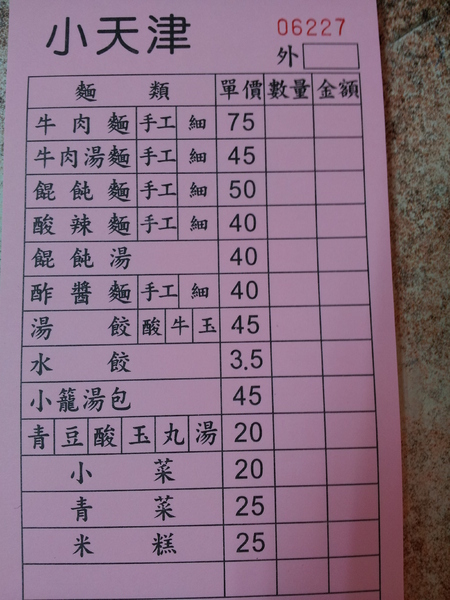 小天津
06227
外
麵類 單價 數量 金額
牛肉麵 手工 細 75
牛肉湯麵 手工 細 45
餛飩麵 手工 細 50
酸辣麵 手工 細 40
餛飩湯 40
酢醬麵 手工 細 40
湯餃 酸 牛 玉 45
水餃 3.5
小籠湯包 45
青 豆 酸 玉 丸 湯 20
小菜 20
青菜 25
米糕 25